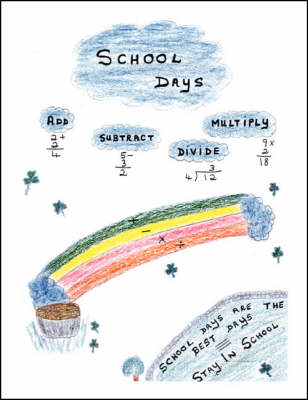 SCHOOL
DAYS
ADD
2+
2
4
SUBTRACT
5-
3
2
DIVIDE
3
4)12
MULTIPLY
9x
2
18
+
-
x
÷
SCHOOL DAYS ARE THE
BEST DAYS
STAY IN SCHOOL